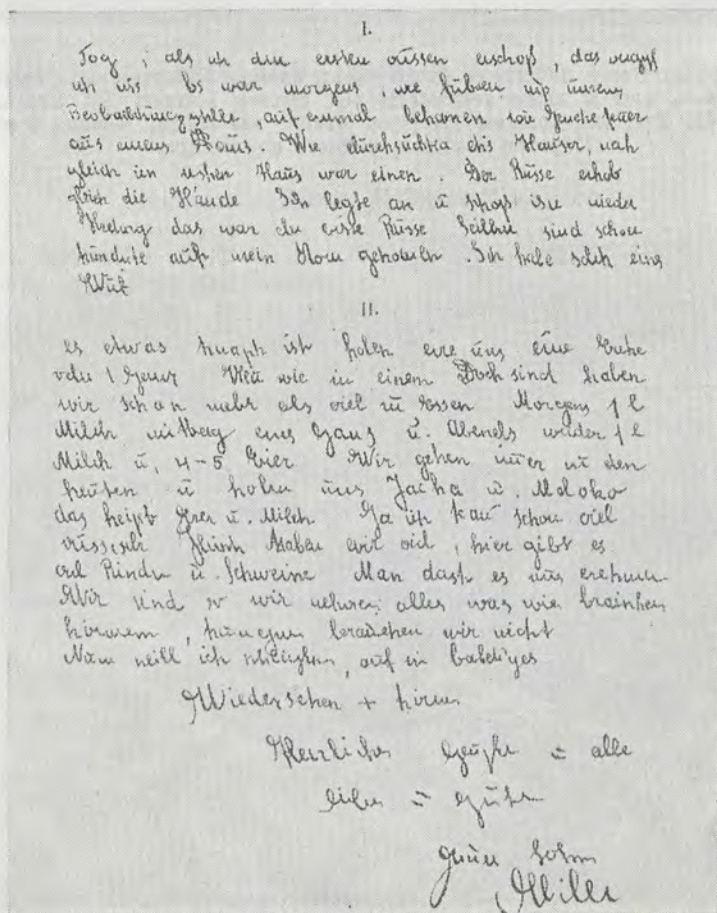 I.
Tag, als ich den ersten Russen erschoß, das vergeß
ich nie Es war morgens, wir fuhren unsere
Beobachtungsstelle, auf einmal bekamen wir Feuer
aus einem Haus. Wir durchsuchten die Häuser,
gleich im ersten Haus war einer. Der Russe erhob
gleich die Hände Ich legte an u schoß ihn nieder
das war der erste Russe Seither sind schon
hunderte auf mein Konto gekommen. Ich habe solch eine
Wut
II.
es etwas knapp ist holen wir uns eine Kuhe
oder 1 Gans Wen wir in einem Dorf sind haben
wir schon mehr als viel zu essen Morgens 1 l
Milch mittag eine Gans u. Abends wieder 1 l
Milch u, 4-5 Eier Wir gehen zu den
Leuten u holen uns Jacka u. Moloko
das heißt Eier u. Milch Ja ich kan schon viel
russisch Fleisch haben wir viel, hier gibt es
viel Rinder u. Schweine Man darf es uns
Wir sind so wir nehmen alles was wir brauchen
hungern brauchen wir nicht
Nun will ich schließen, auf ein baldiges
Wiedersehen +
Herzliche Grüße u alle
liebe u gute
Euer Sohn
Willi